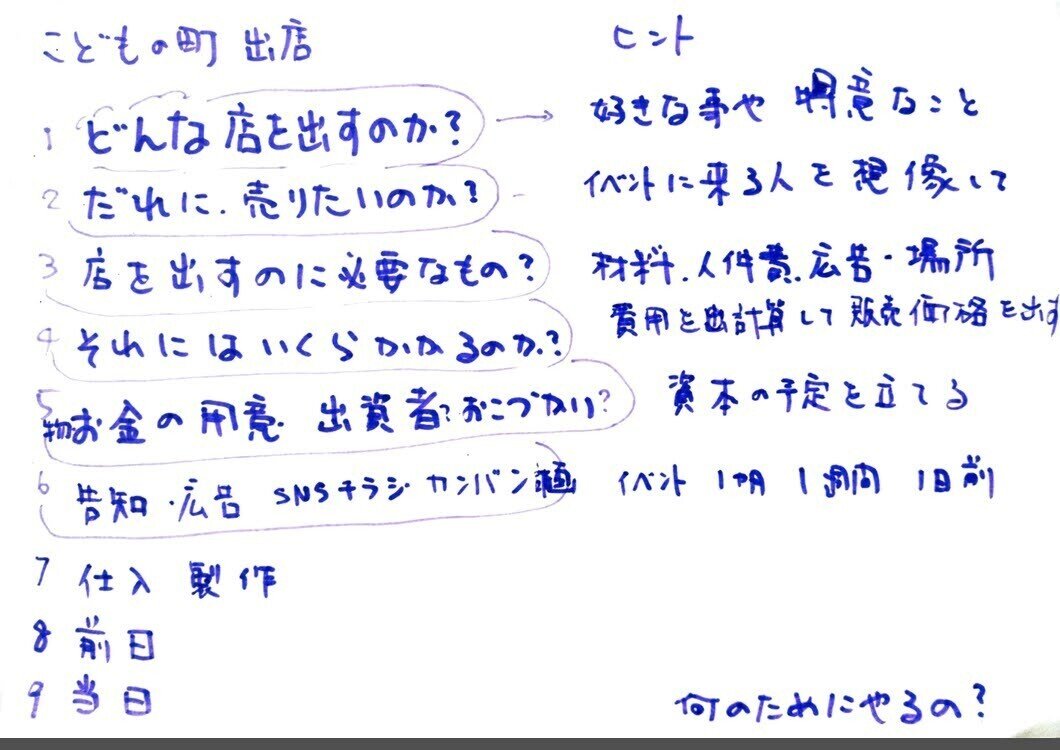 こどもの町 出店
ヒント
1 どんな店を出すのか? → 好きな事や 得意なこと
2 だれに、売りたいのか? - イベントに来る人を想像して
3 店を出すのに必要なもの? 材料、人件費、広告・場所
費用を出計算して販売価格を出す
4 それにはいくらかかるのか?
5 物お金の用意、出資者?おこづかい? 資本の予定を立てる
6 告知・広告 SNSチラシ カンバン イベント 1ヶ月 1週間 1日前
7 仕入 製作
8 前日
9 当日
何のためにやるの?